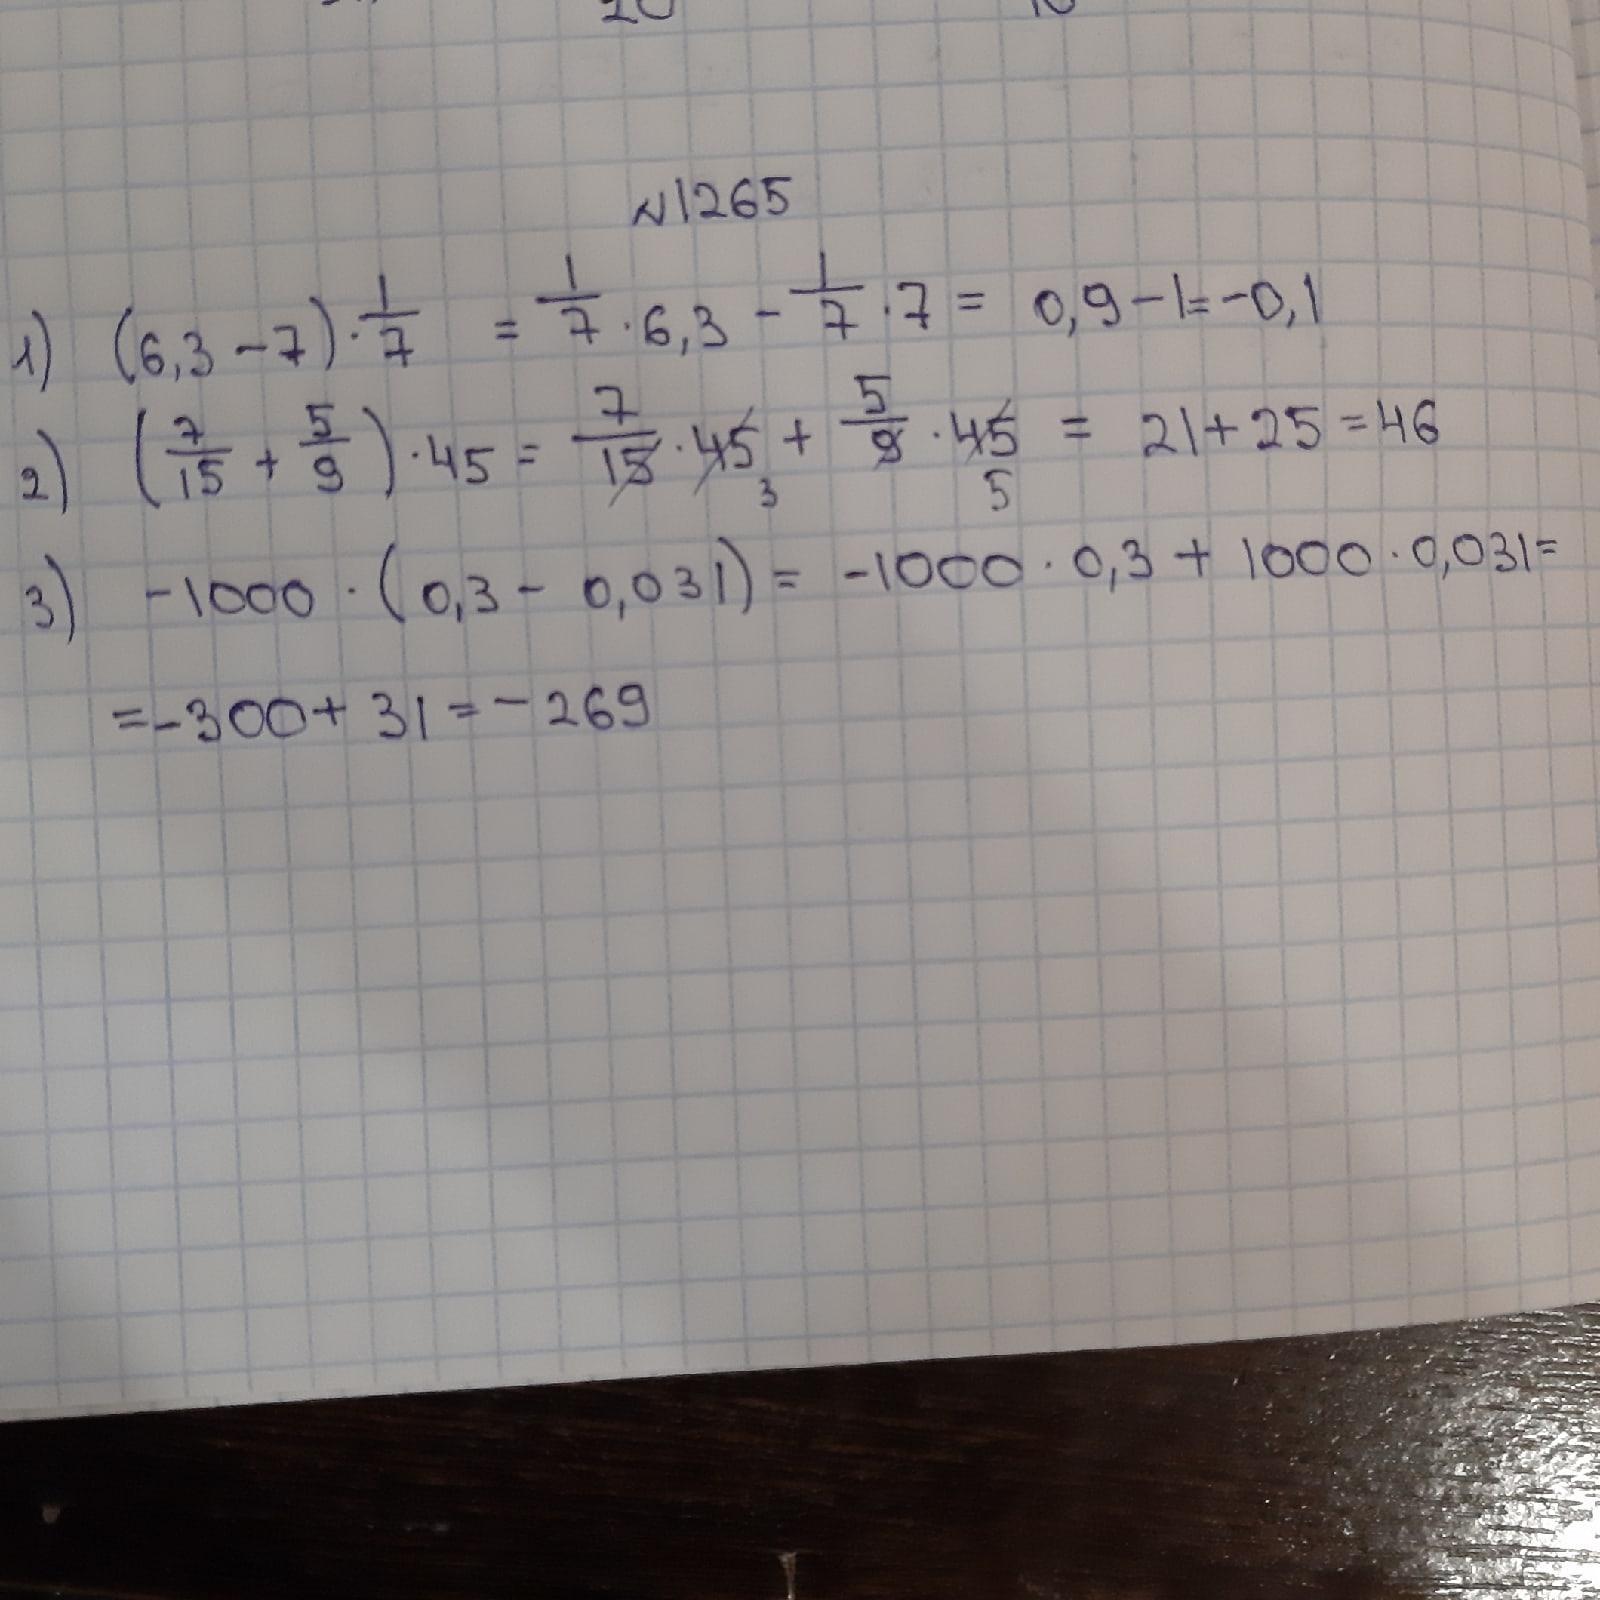 20 10
N1265
1) (6,3 - 7) · 1/7 = 1/7 · 6,3 - 1/7 · 7 = 0,9 - 1 = -0,1
2) (7/15 + 5/9) · 45 = 7/15 · 45 3 + 5/9 · 45 5 = 21 + 25 = 46
3) -1000 · (0,3 - 0,031) = -1000 · 0,3 + 1000 · 0,031 =
= -300 + 31 = -269